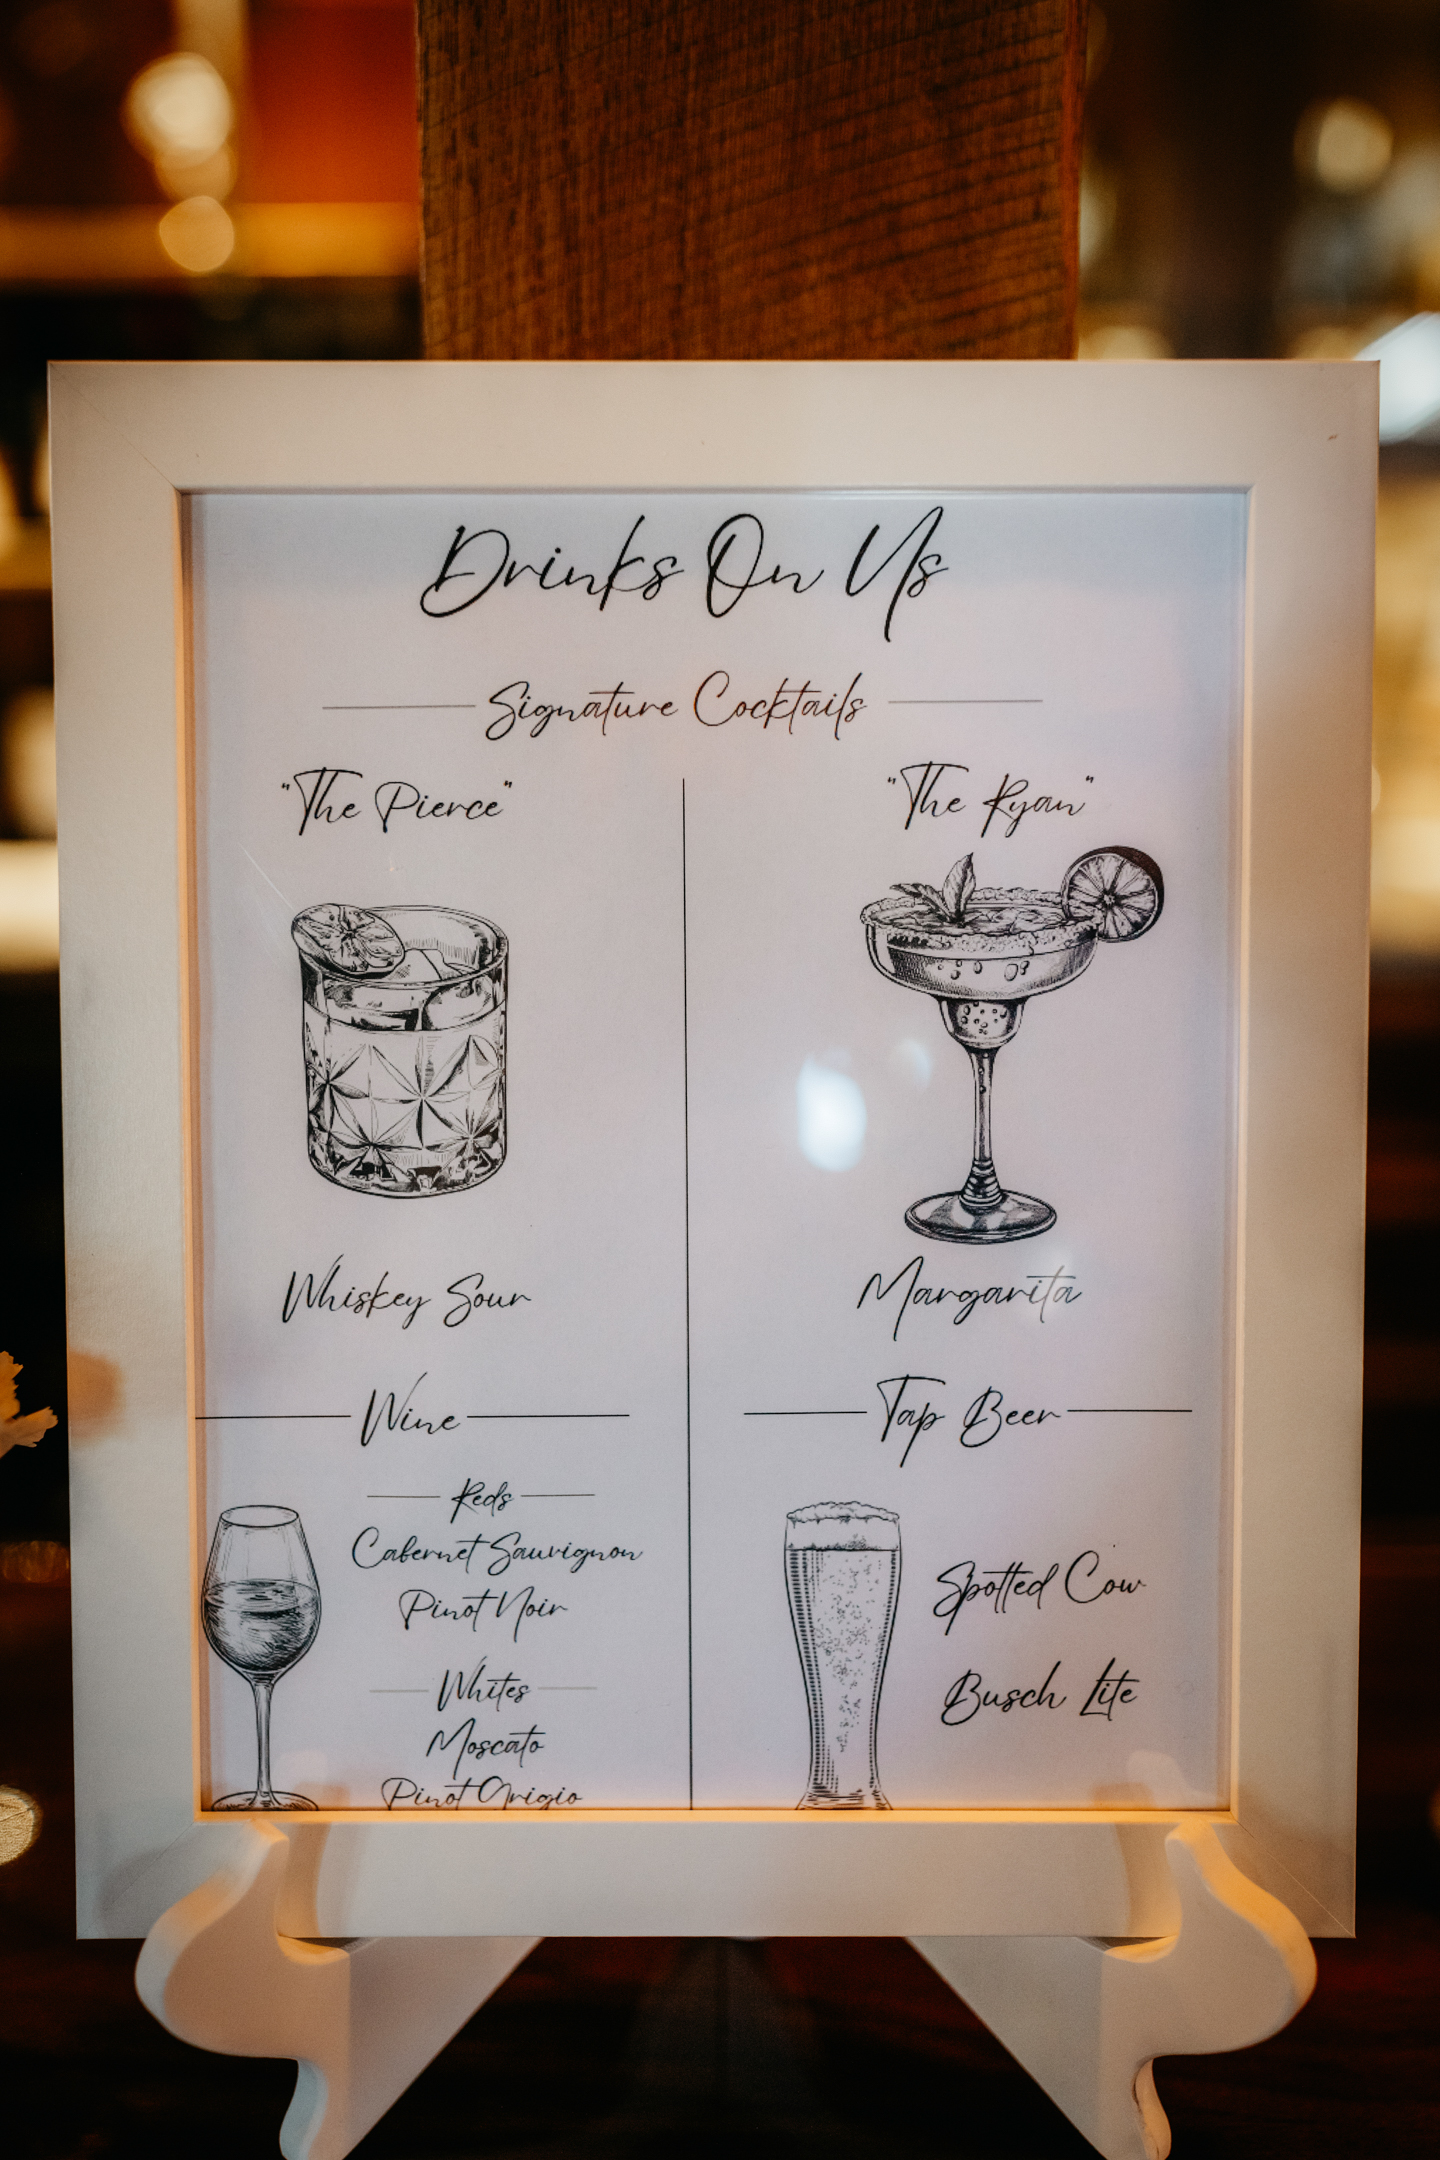 Drinks On Us
Signature Cocktails
"The Pierce"
Whiskey Sour
"The Ryan"
Margarita
Wine
Reds
Cabernet Sauvignon
Pinot Noir
Whites
Moscato
Pinot Grigio
Tap Beer
Spotted Cow
Busch Lite